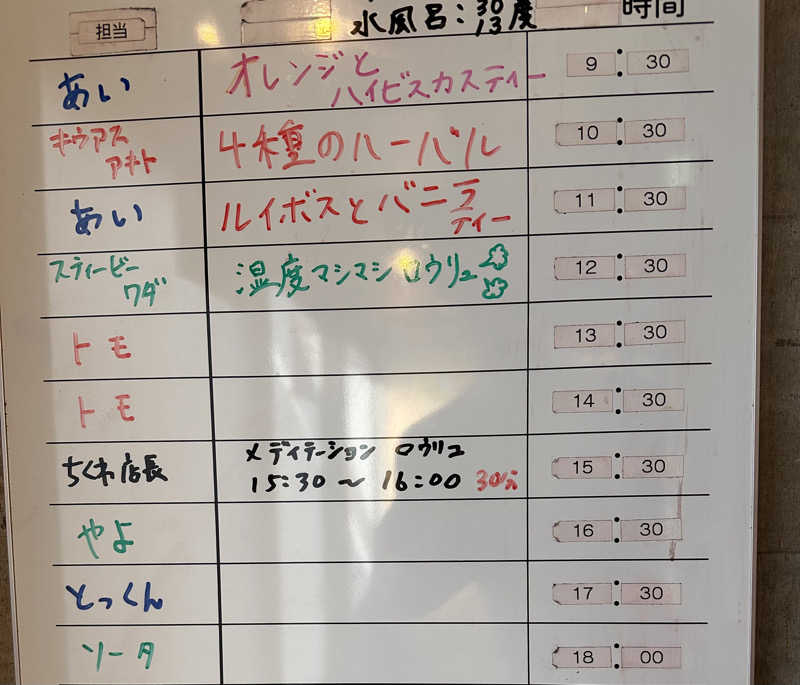 水風呂：30 13度
担当 時間
あい オレンジと ハイビスカスティー 9：30
キウアス アキト 4種のハーバル 10：30
あい ルイボスとバニラ ティー 11：30
スティービー ワダ 温度マシマシロウリュ 12：30
トモ 13：30
トモ 14：30
ちくわ店長 メディテーション ロウリュ 15：30
15:30～16:00 30分
やよ 16：30
とっくん 17：30
ソータ 18：00